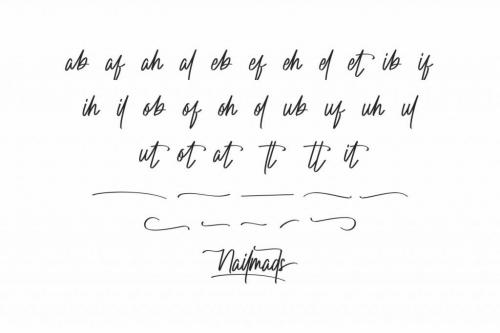 ab af ah al eb ef eh el et ib if
ih il ob of oh ol ub uf uh ul
ut ot at tl tt it
Nailmads